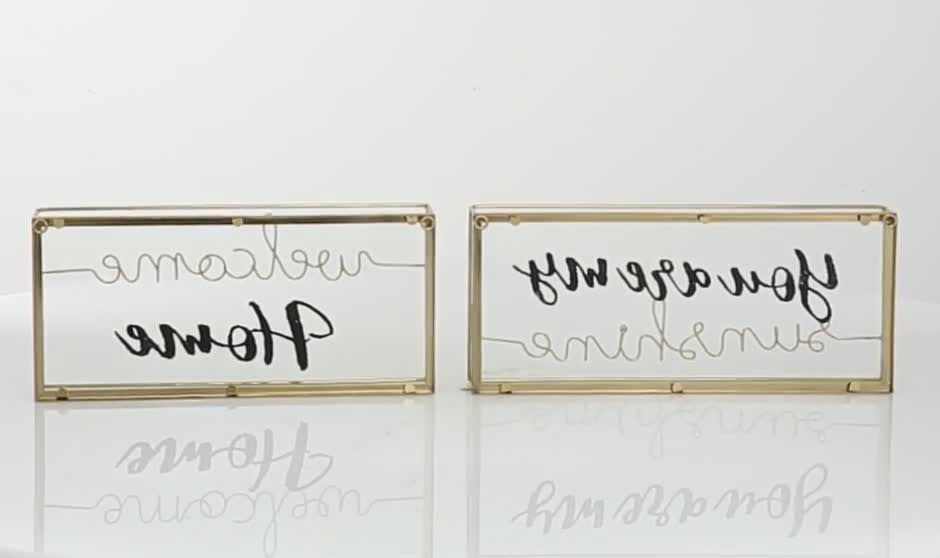 welcome
Home
you are my
sunshine